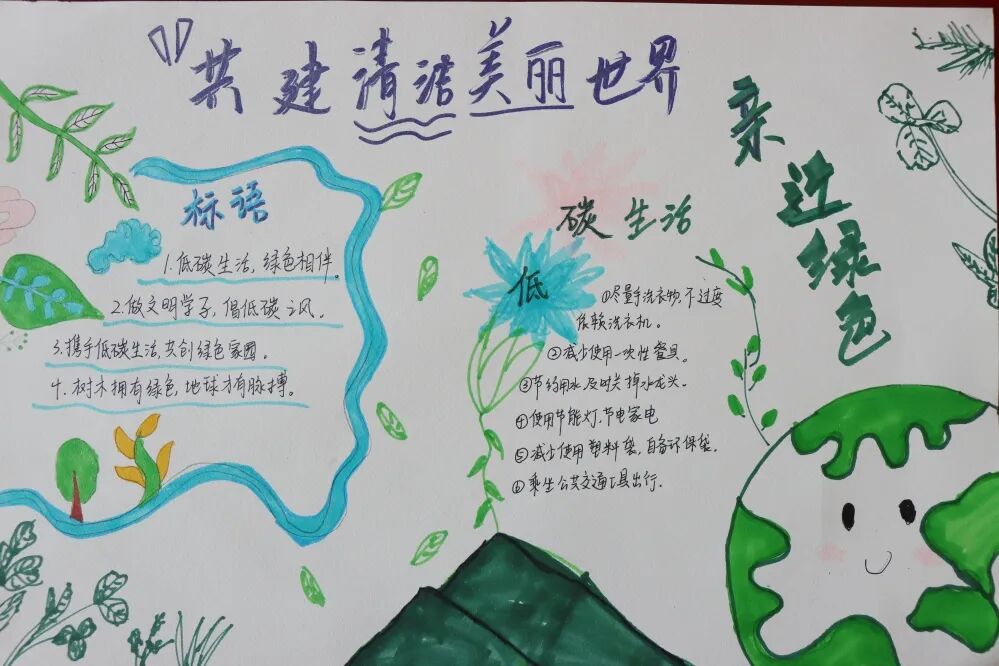 共建清洁美丽世界
亲近绿色
标语
1.低碳生活,绿色相伴。
2.做文明学子,倡低碳之风。
3.携手低碳生活,共创绿色家园。
4.树木拥有绿色,地球才有脉搏。
低碳生活
①尽量手洗衣物,不过度
依赖洗衣机。
②减少使用一次性餐具。
③节约用水,及时关掉水龙头。
④使用节能灯,节电家电
⑤减少使用塑料袋,自备环保袋。
⑥乘坐公共交通工具出行.